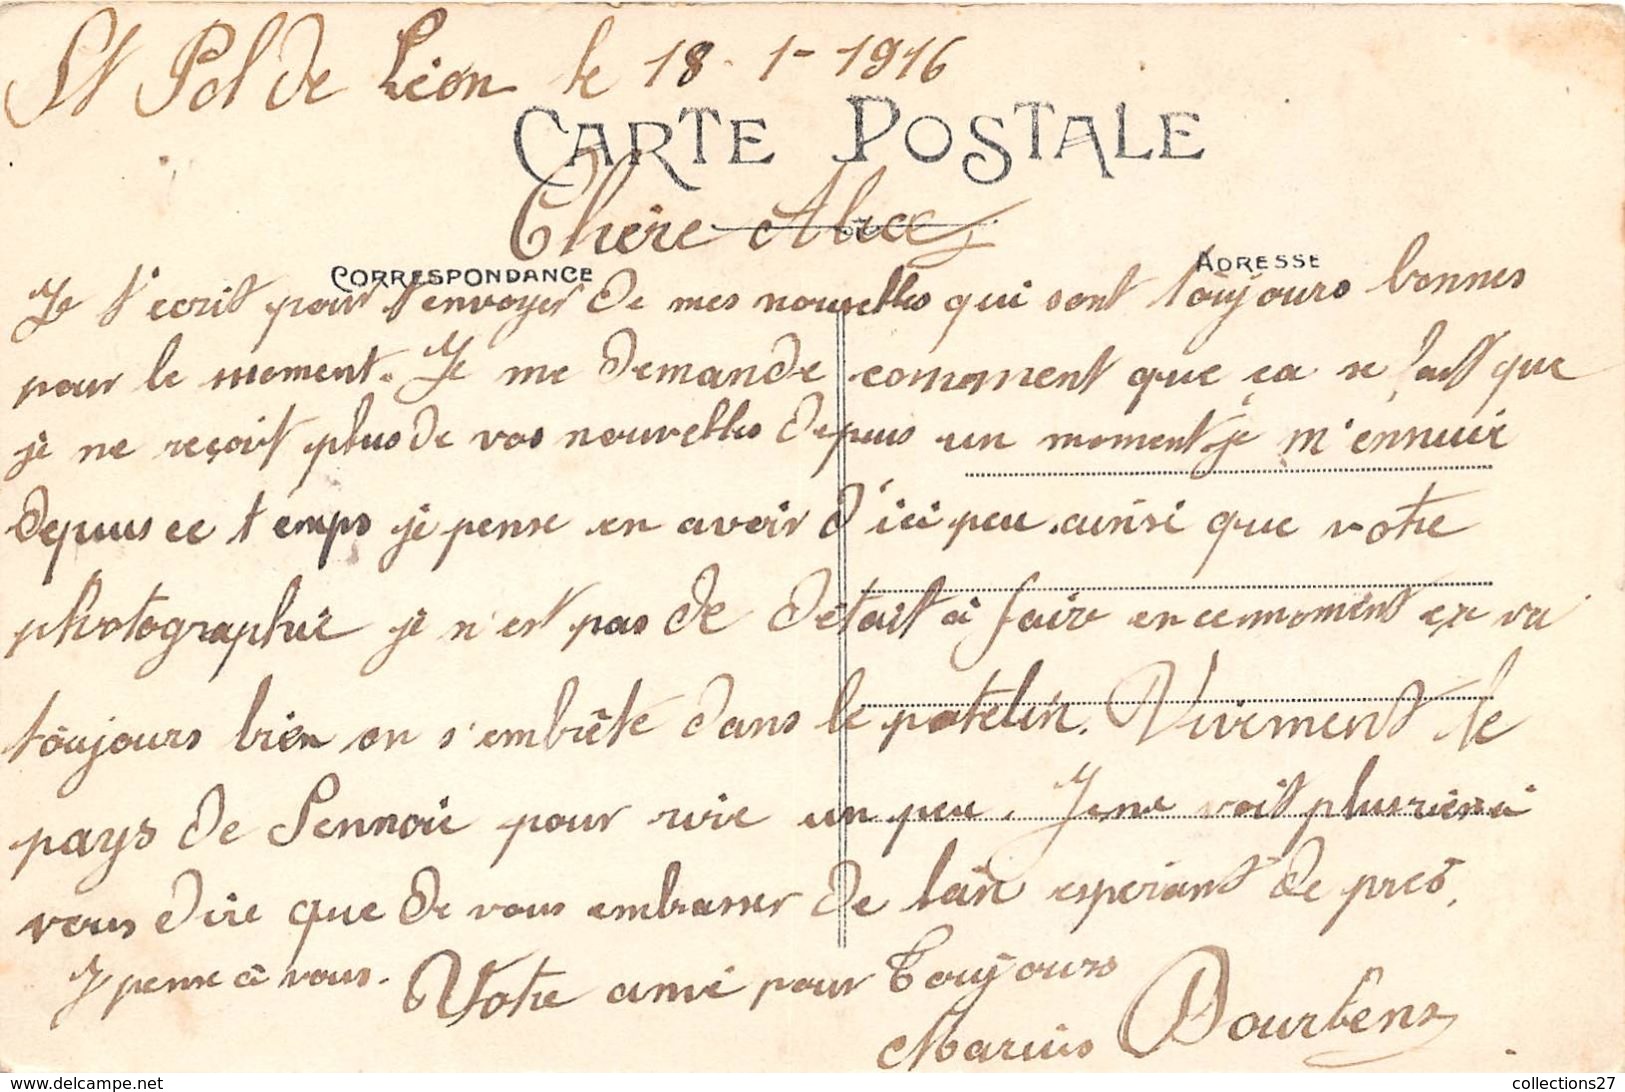 St Pol de Léon le 18-1-1916
CARTE POSTALE
Chère Alice
CORRESPONDANCE
ADRESSE
Je t'ecrit pour t'envoyer de mes nouvelles qui sont toujours bonnes
pour le moment. Je me demande comment que ça se fait que
je ne reçoit plus de vos nouvelles depuis un moment je m'ennuie
depuis ce temps je pense en avoir d'ici peu ainsi que votre
photographie je n'est pas de détait à faire en ce moment ça va
toujours bien on s'embête dans le patelin. Vivement le
pays de pour rire un peu. Je ne voit plus rien à
vous dire que de vous embrasser de loin esperant de près.
Je pense à vous. Votre ami pour Toujours
Marius Dourbens
collections27